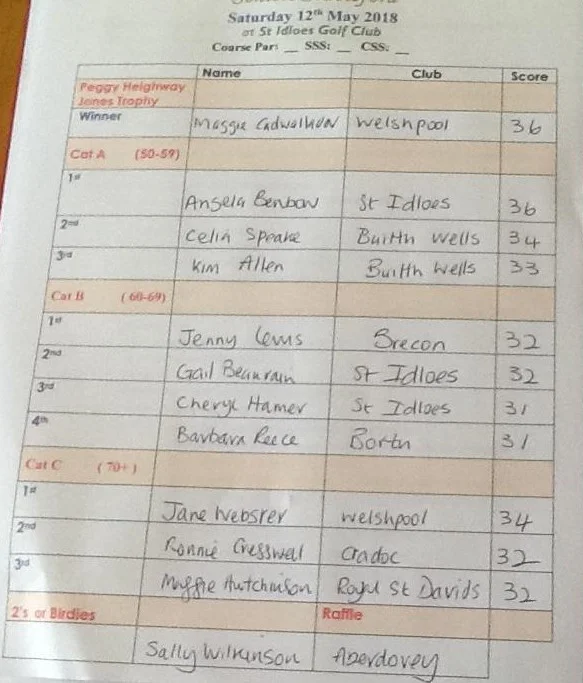 Saturday 12th May 2018
at St Idloes Golf Club
Course Par: __ SSS: __ CSS: __
Name Club Score
Peggy Heighway
Jones Trophy
Winner Maggie Cadwalladr Welshpool 36
Cat A (50-59)
1st Angela Benbow St Idloes 36
2nd Celia Speake Builth Wells 34
3rd Kim Allen Builth Wells 33
Cat B (60-69)
1st Jenny Lewis Brecon 32
2nd Gail Beaurain St Idloes 32
3rd Cheryl Hamer St Idloes 31
4th Barbara Reece Borth 31
Cat C (70+)
1st Jane Webster Welshpool 34
2nd Ronnie Cresswell Cradoc 32
3rd Maggie Hutchinson Royal St Davids 32
2's or Birdies Raffle
Sally Wilkinson Aberdovey